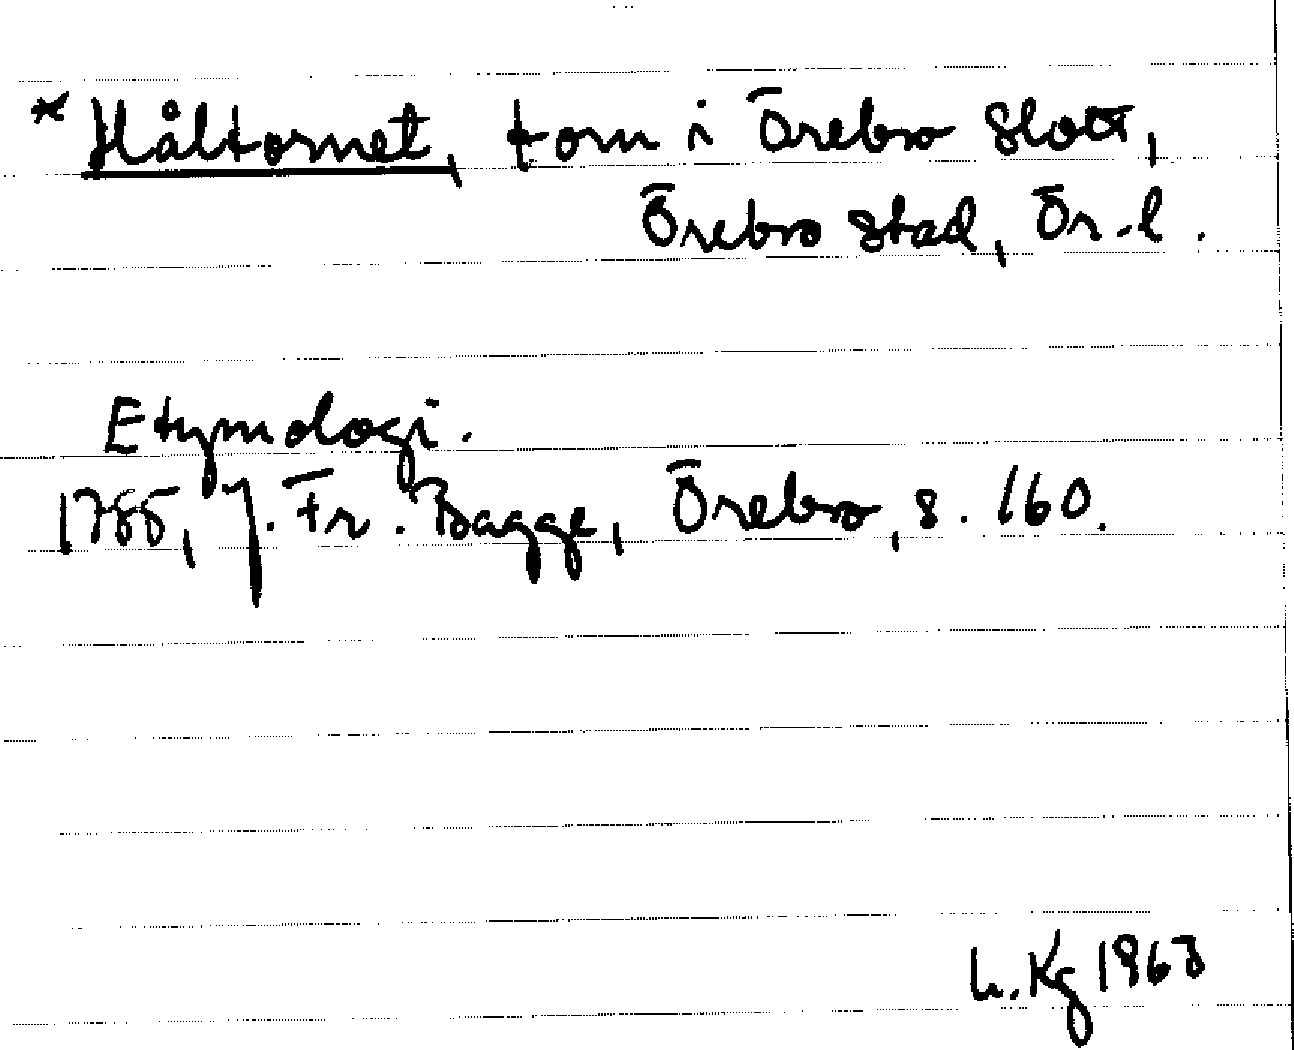 * Håltornet, torn i Örebro slott,
Örebro stad, Ör.l.
Etymologi.
1785, J. Fr. Bagge, Örebro, s. 160.
Kg 1963